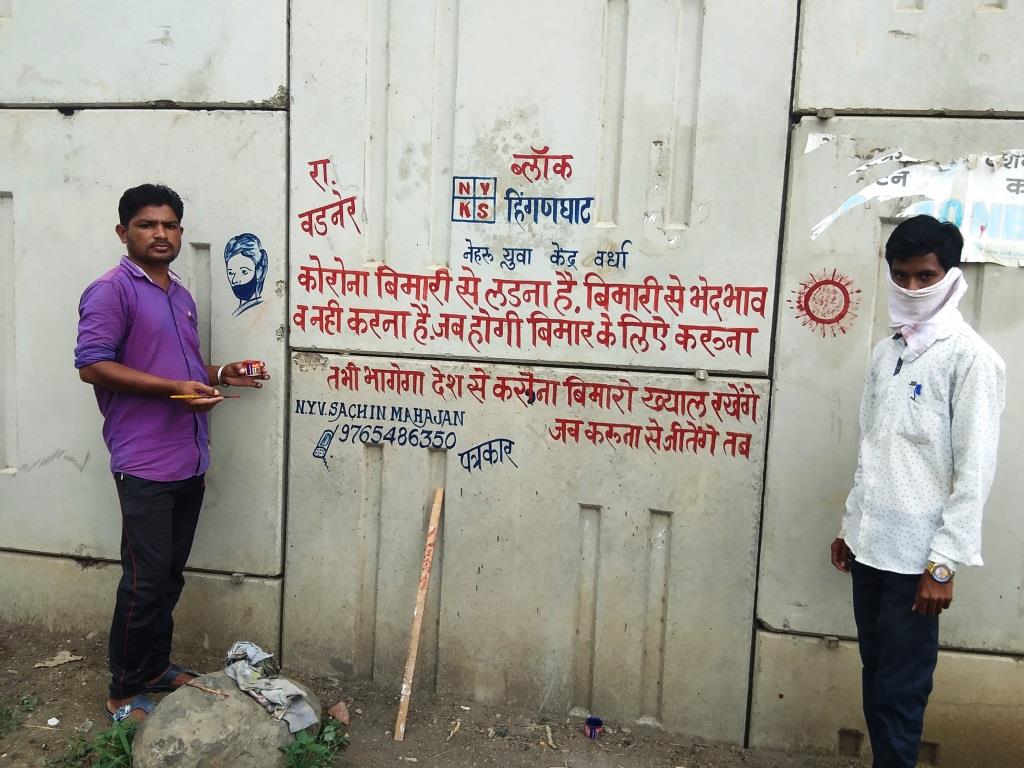 रा.
वडनेर
ब्लॉक
NY
KS
हिंगणघाट
नेहरू युवा केंद्र वर्धा
कोरोना बिमारी से लडना है, बिमारी से भेदभाव
व नही करना है. जब होगी बिमार के लिऐ करूना
तभी भागेगा देश से करोना बिमारो ख्याल रखेंगे
जब करूना से जीतेंगे तब
N.Y.V. SACHIN MAHAJAN
9765486350
पत्रकार